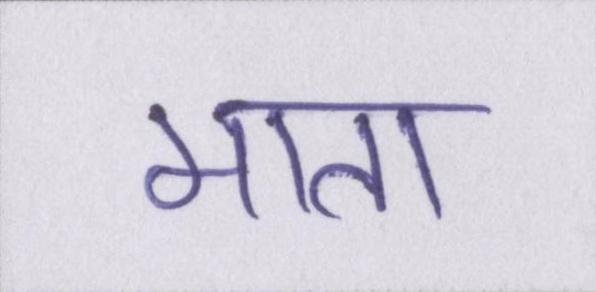 माता